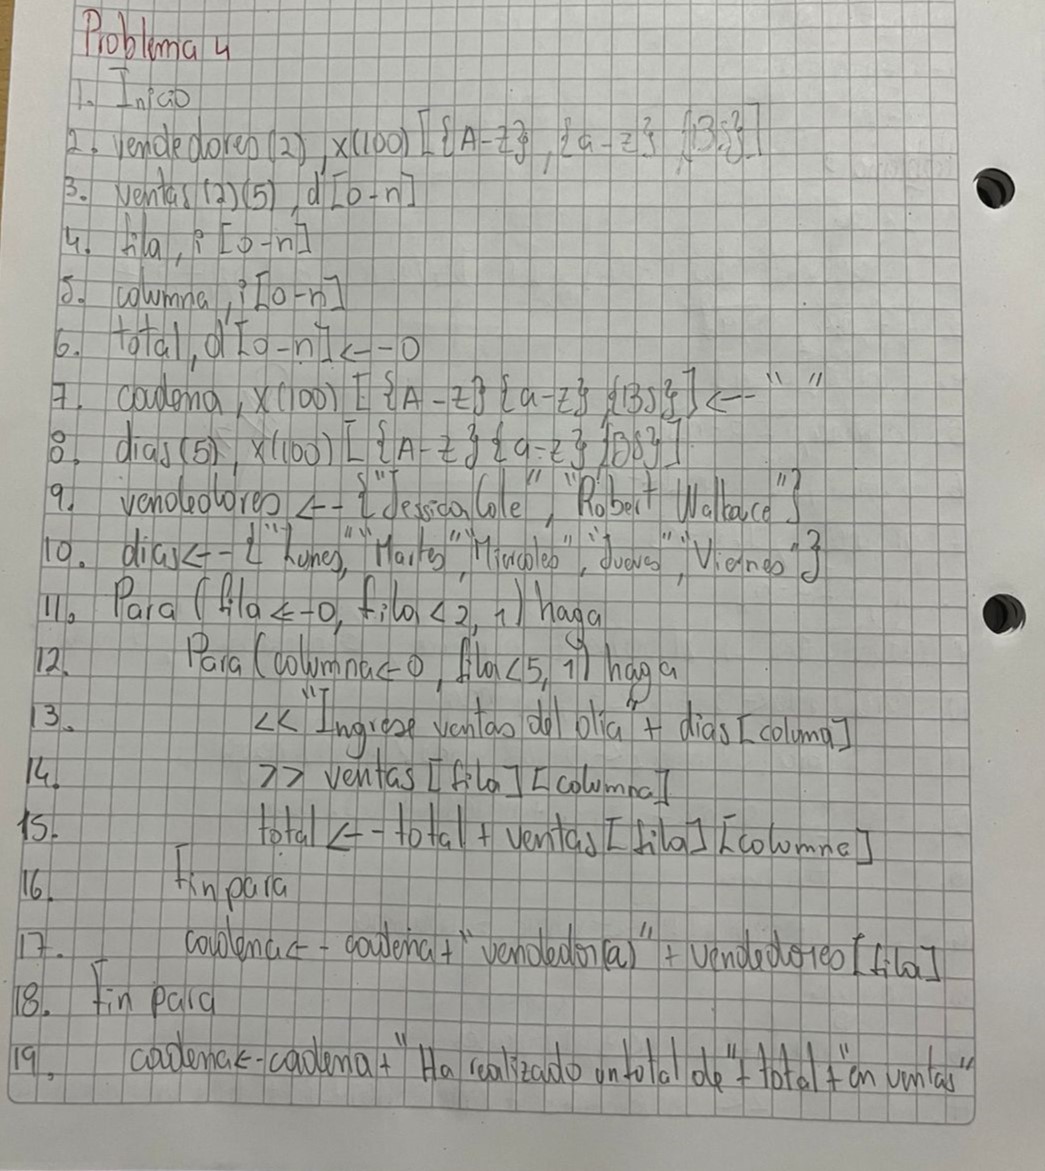 Problema 4
1. Inicio
2. vendedores(2), x(100) [{A-Z}, {a-z} {BS}]
3. ventas(2)(5), d[0-n]
4. fila, i [0-n]
5. columna, i[0-n]
6. total, d[0-n]<--0
7. cadena, x(100) [{A-Z} {a-z} {BS}] <-- " "
8. dias(5), x(100) [{A-Z} {a-z} {BS}]
9. vendedores <-- {"Jessica Cole", "Robert Wallace"}
10. dias<--{"Lunes", "Martes", "Miercoles", "Jueves", "Viernes"}
11. Para (fila <-0, fila<2, 1) haga
12. Para (columna<-0, fila<5, 1) haga
13. << "Ingrese ventas del dia" + dias[coluna]
14. >> ventas [fila] [columna]
15. total <-- total + ventas [fila] [columna]
16. Fin para
17. cadena<-- cadena+ "vendedor(a)" + vendedores [fila]
18. Fin para
19. cadena<--cadena+ "Ha realizado un total de"+ total + "en ventas"